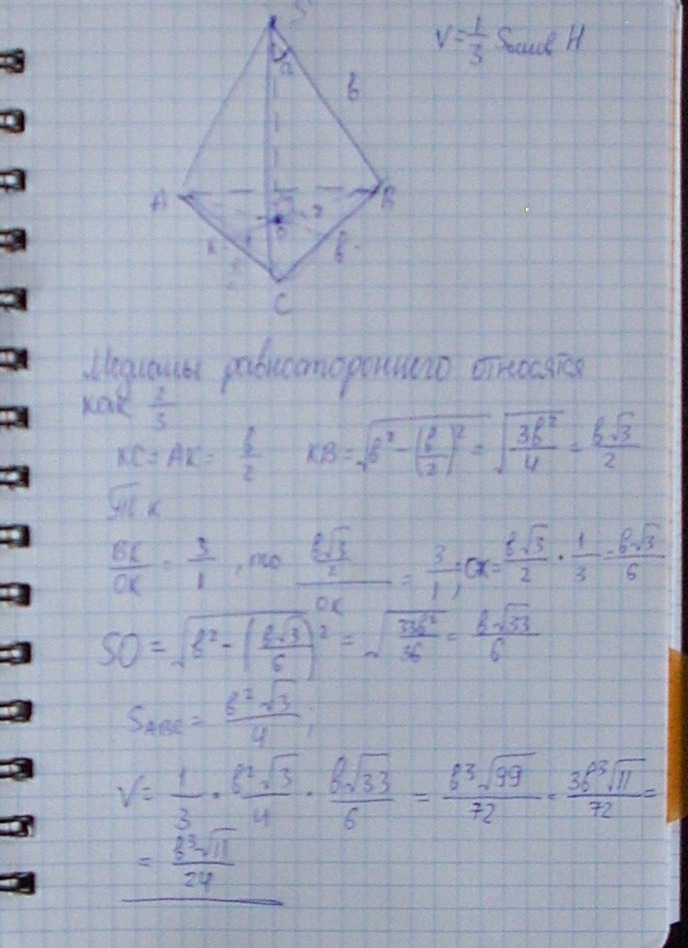 S
V = 1/3 Sоснв H
a
в
A
B
2
O
K
1
в
C
Медианы равностороннего относятся
как 2/3
KC = AK = в/2 KB = √(в² - (в/2)²) = √(3в²/4) = в√3/2
Т.к
BK/OK = 3/1, то (в√3/2)/OK = 3/1; OK = в√3/2 · 1/3 = в√3/6
SO = √(в² - (в√3/6)²) = √(33в²/36) = в√33/6
SABC = в²√3/4;
V = 1/3 · в²√3/4 · в√33/6 = в³√99/72 = 3в³√11/72 =
= в³√11/24